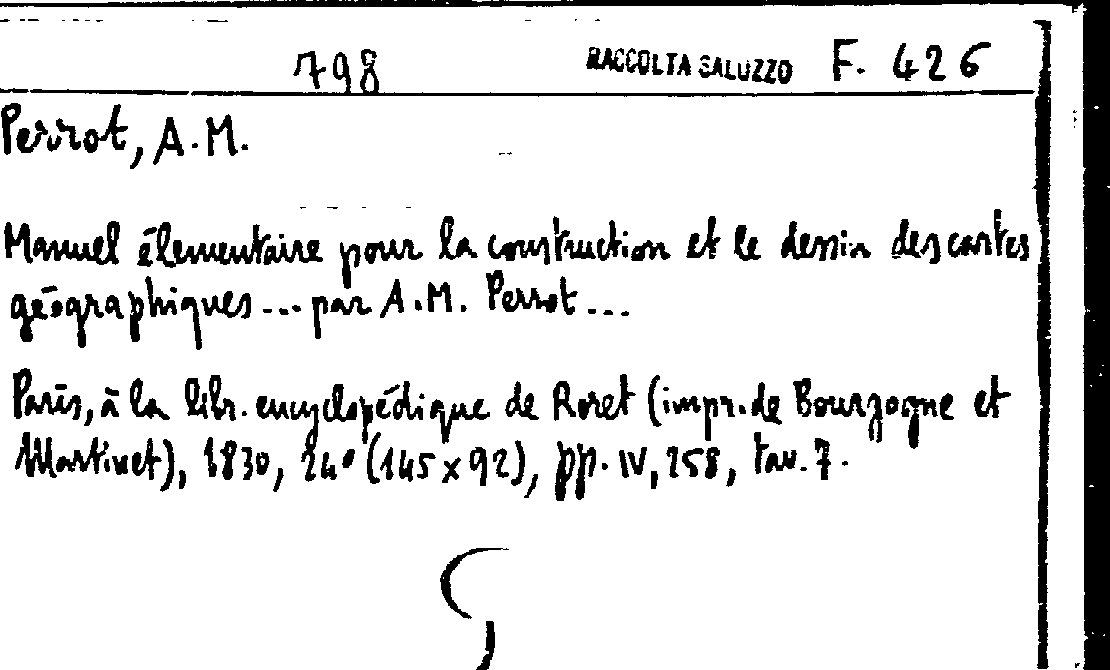 798 RACCOLTA SALUZZO F. 426
Perrot, A.M.
Manuel élementaire pour la construction et le dessin des cartes
géographiques... par A.M. Perrot...
Paris, à la libr. encyclopédique de Roret (impr. de Bourgogne et
Martinet), 1830, 24° (145 x 92), pp. IV, 258, tav. 7.